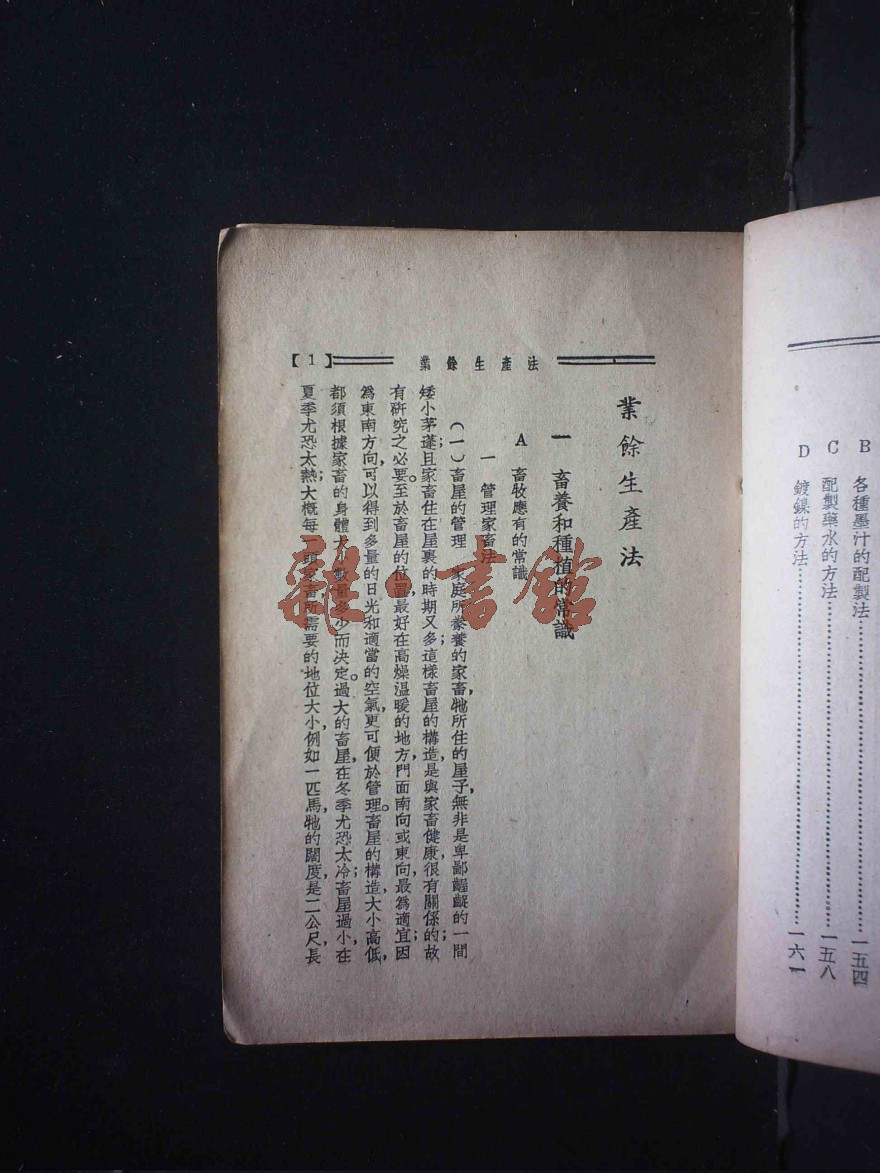 B 各種墨汁的配製法……一五四
C 配製藥水的方法……一五八
D 鍍鎳的方法……一六一
【1】 業餘生產法
業餘生產法
一 畜養和種植的常識
A 畜牧應有的常識
一 管理家畜法
(一)畜屋的管理 家庭所豢養的家畜,牠所住的屋子,無非是卑鄙齷齪的一間
矮小茅蓬;且家畜住在屋裏的時期又多;這樣畜屋的構造,是與家畜健康,很有關係的;故
有研究之必要。至於畜屋的位置,最好在高燥溫暖的地方,門面南向或東向,最爲適宜,因
爲東南方向,可以得到多量的日光和適當的空氣,更可便於管理。畜屋的構造,大小高低,
都須根據家畜的身體大小數量多少而決定。過大的畜屋,在冬季尤恐太冷;畜屋過小,在
夏季尤恐太熱;大概每一頭家畜所需要的地位大小,例如一匹馬,牠的闊度,是二公尺,長
雜·書館